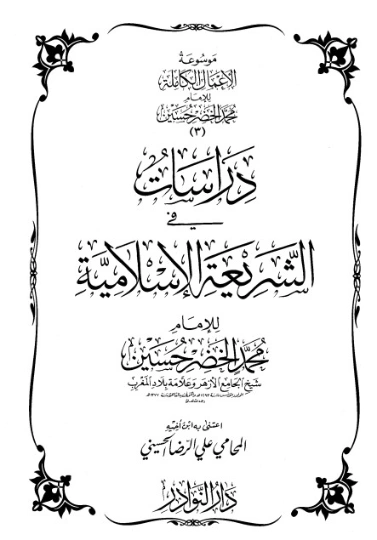 موسوعة
الأعمال الكاملة
للإمام
محمد الخضر حسين
(٣)
دراسات
في
الشريعة الإسلامية
للإمام
محمد الخضر حسين
شيخ الجامع الأزهر وعلامة بلاد المغرب
اعتنى به ابن أخيه
المحامي علي الرضا الحسيني
دار النوادر